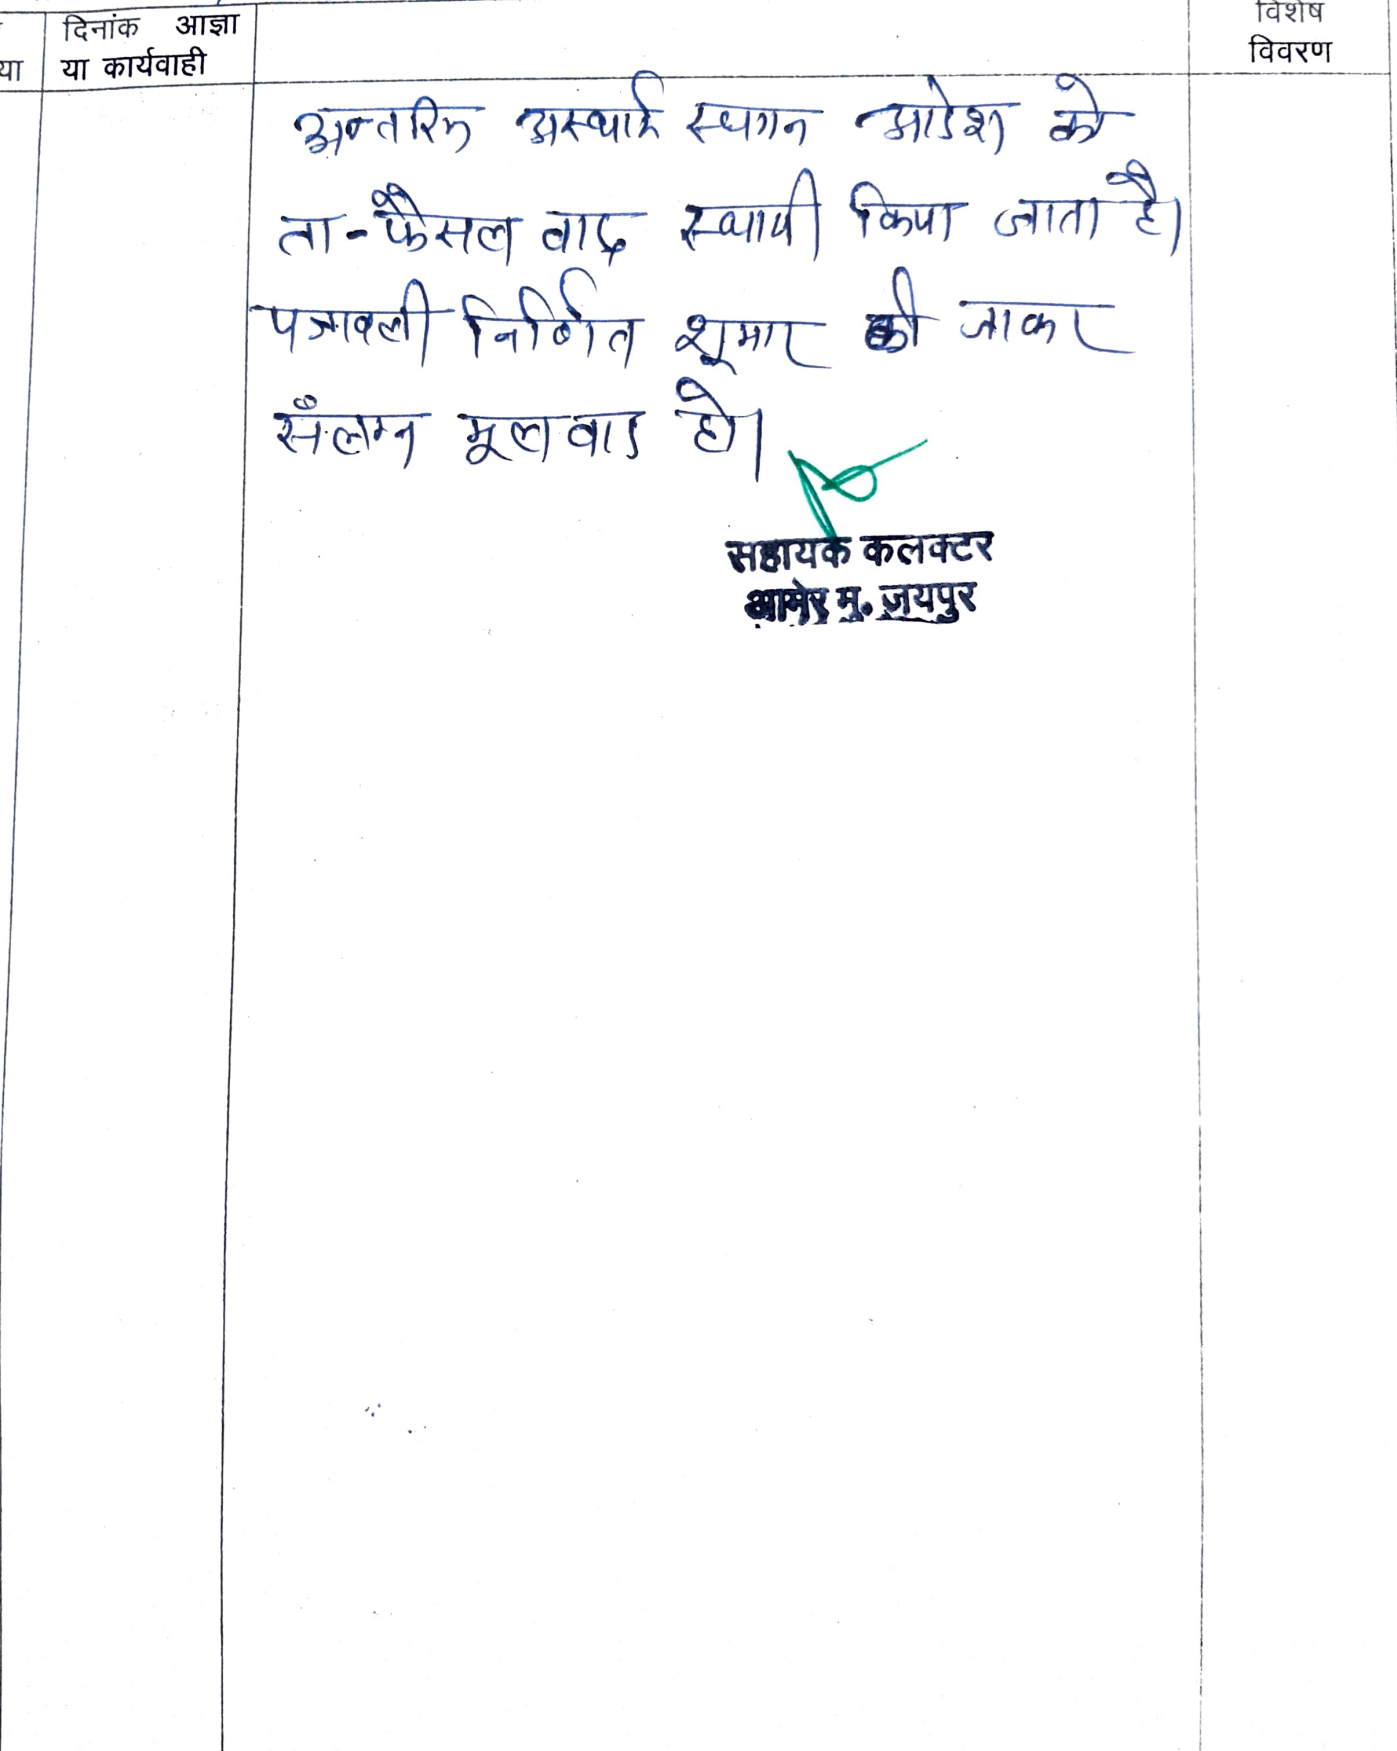 दिनांक आज्ञा
या कार्यवाही
या
विशेष
विवरण
अन्तरिम अस्थाई स्थगन आदेश को
ता-फैसल वाद स्थायी किया जाता है।
पत्रावली निर्णित शुमार की जाकर
संलग्न मूल वाद हो।
सहायक कलक्टर
आमेर मु. जयपुर